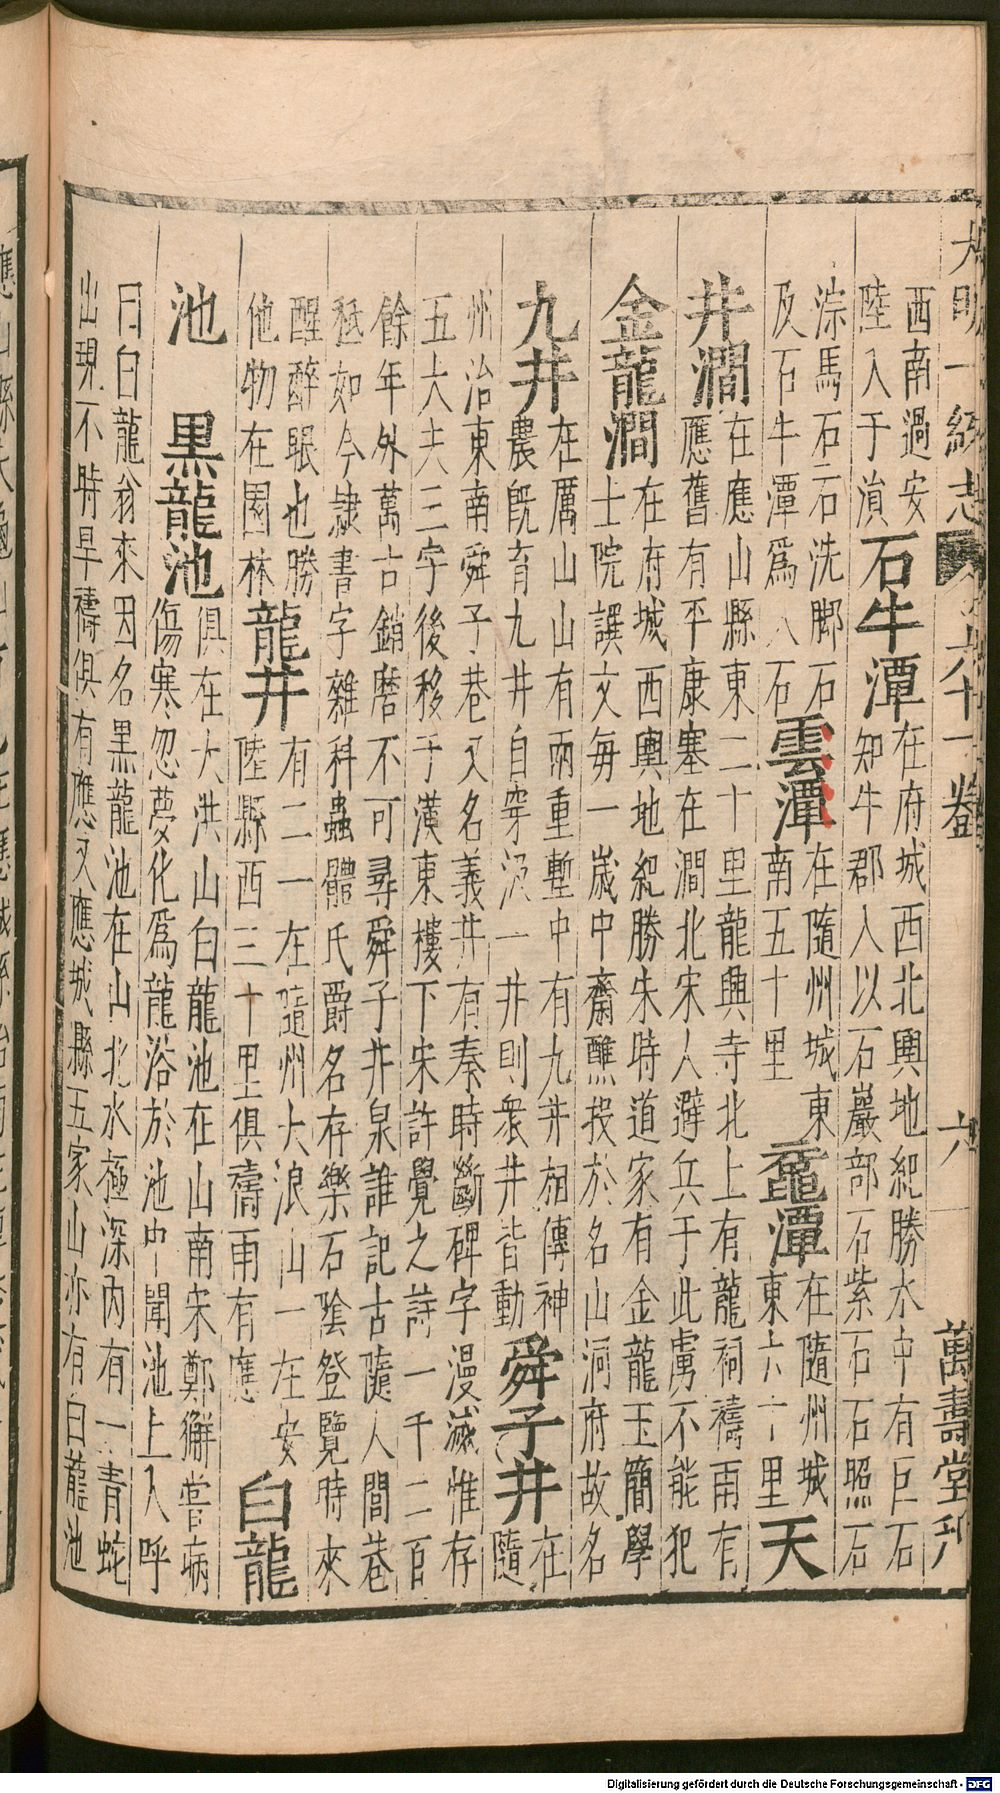 大明一統志 卷六十一卷 六 萬壽堂刋
西南過安
陸入于溳
石牛潭
在府城西北輿地紀勝水中有巨石
知牛郡入以石巖部石紫石石照石
淙馬石云石洗脚石
及石牛潭爲八石
雲潭
在隨州城東
南五十里
黿潭
在隨州城
東六十里
天
井澗
在應山縣東二十里龍興寺北上有龍祠禱雨有
應舊有平康塞在澗北宋人避兵于此虜不能犯
金龍澗
在府城西輿地紀勝朱時道家有金龍玉簡學
士院譔文每一歲中齋醮投於名山洞府故名
九井
在厲山山有兩重塹中有九井相傳神
農旣育九井自穿汲一井則衆井皆動
舜子井
在
隨
州治東南舜子巷又名義井有秦時斷碑字漫滅惟存
五大夫三字後移于漢東樓下宋許覺之詩一千二百
餘年外萬古銷磨不可尋舜子井泉誰記古隨人間巷
秪如今隷書字雜科蟲體氏爵名存樂石陰登覽時來
醒醉眼也勝
他物在園林
龍井
有二一在隨州大浪山一在安
陸縣西三十里俱禱雨有應
白龍
池 黑龍池
俱在大洪山白龍池在山南宋鄭獬嘗病
傷寒忽夢化爲龍浴於池中聞池上人呼
曰白龍翁來因名黑龍池在山北水極深內有一青蛇
出現不時旱禱俱有應又應城縣五家山亦有白龍池
Digitalisierung gefördert durch die Deutsche Forschungsgemeinschaft - DFG